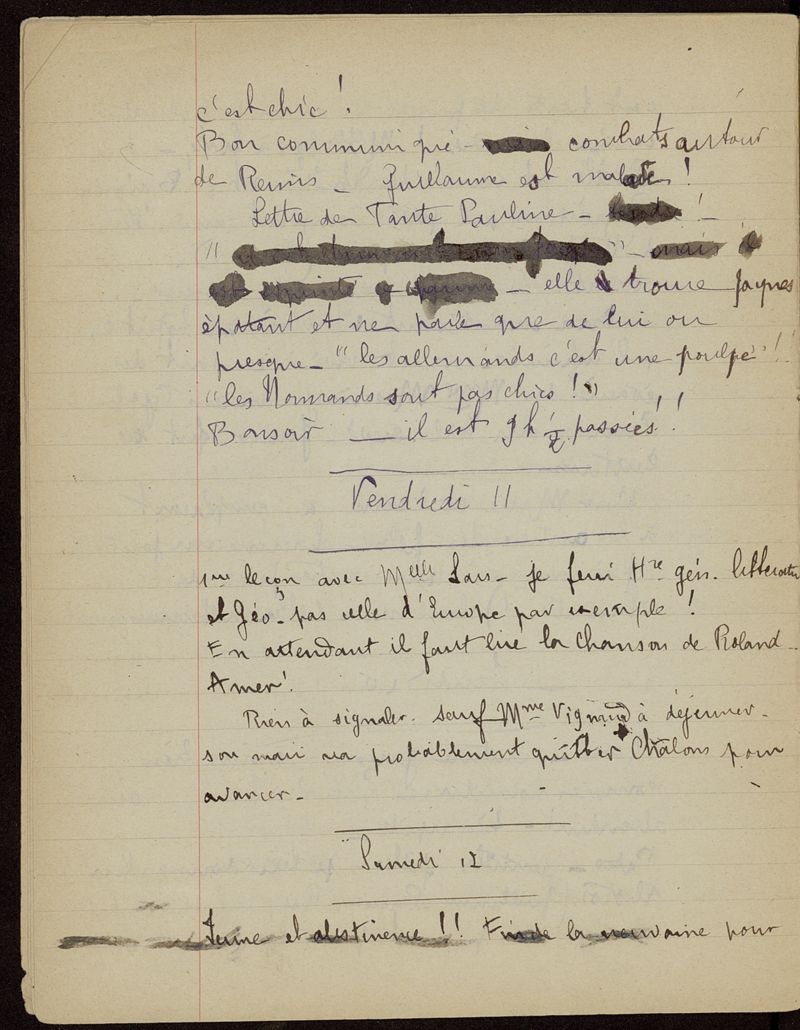 c'est chic !
Bon communiqué - combats autour
de Reims - Guillaume est malade !
Lettre de Tante Pauline - !
" " - mais
- elle trouve Jaques
èpatant et ne parle que de lui ou
presque - "les allemands c'est une poulpe" !
"les Normands sont pas chics !"
Bonsoir — il est 9 h ½ passées !!
Vendredi 11
1ère leçon avec Melle - je ferai Hre gén. litterature
et Géo - pas celle d'Europe par exemple !
En attendant il faut lire la Chanson de Roland -
Amer !
Rien à signaler - sauf Mme à déjeuner -
son mari va probablement quitter Châlons pour
avancer -
Samedi 12
Jeune et abstinence !! Fin de la neuvaine pour